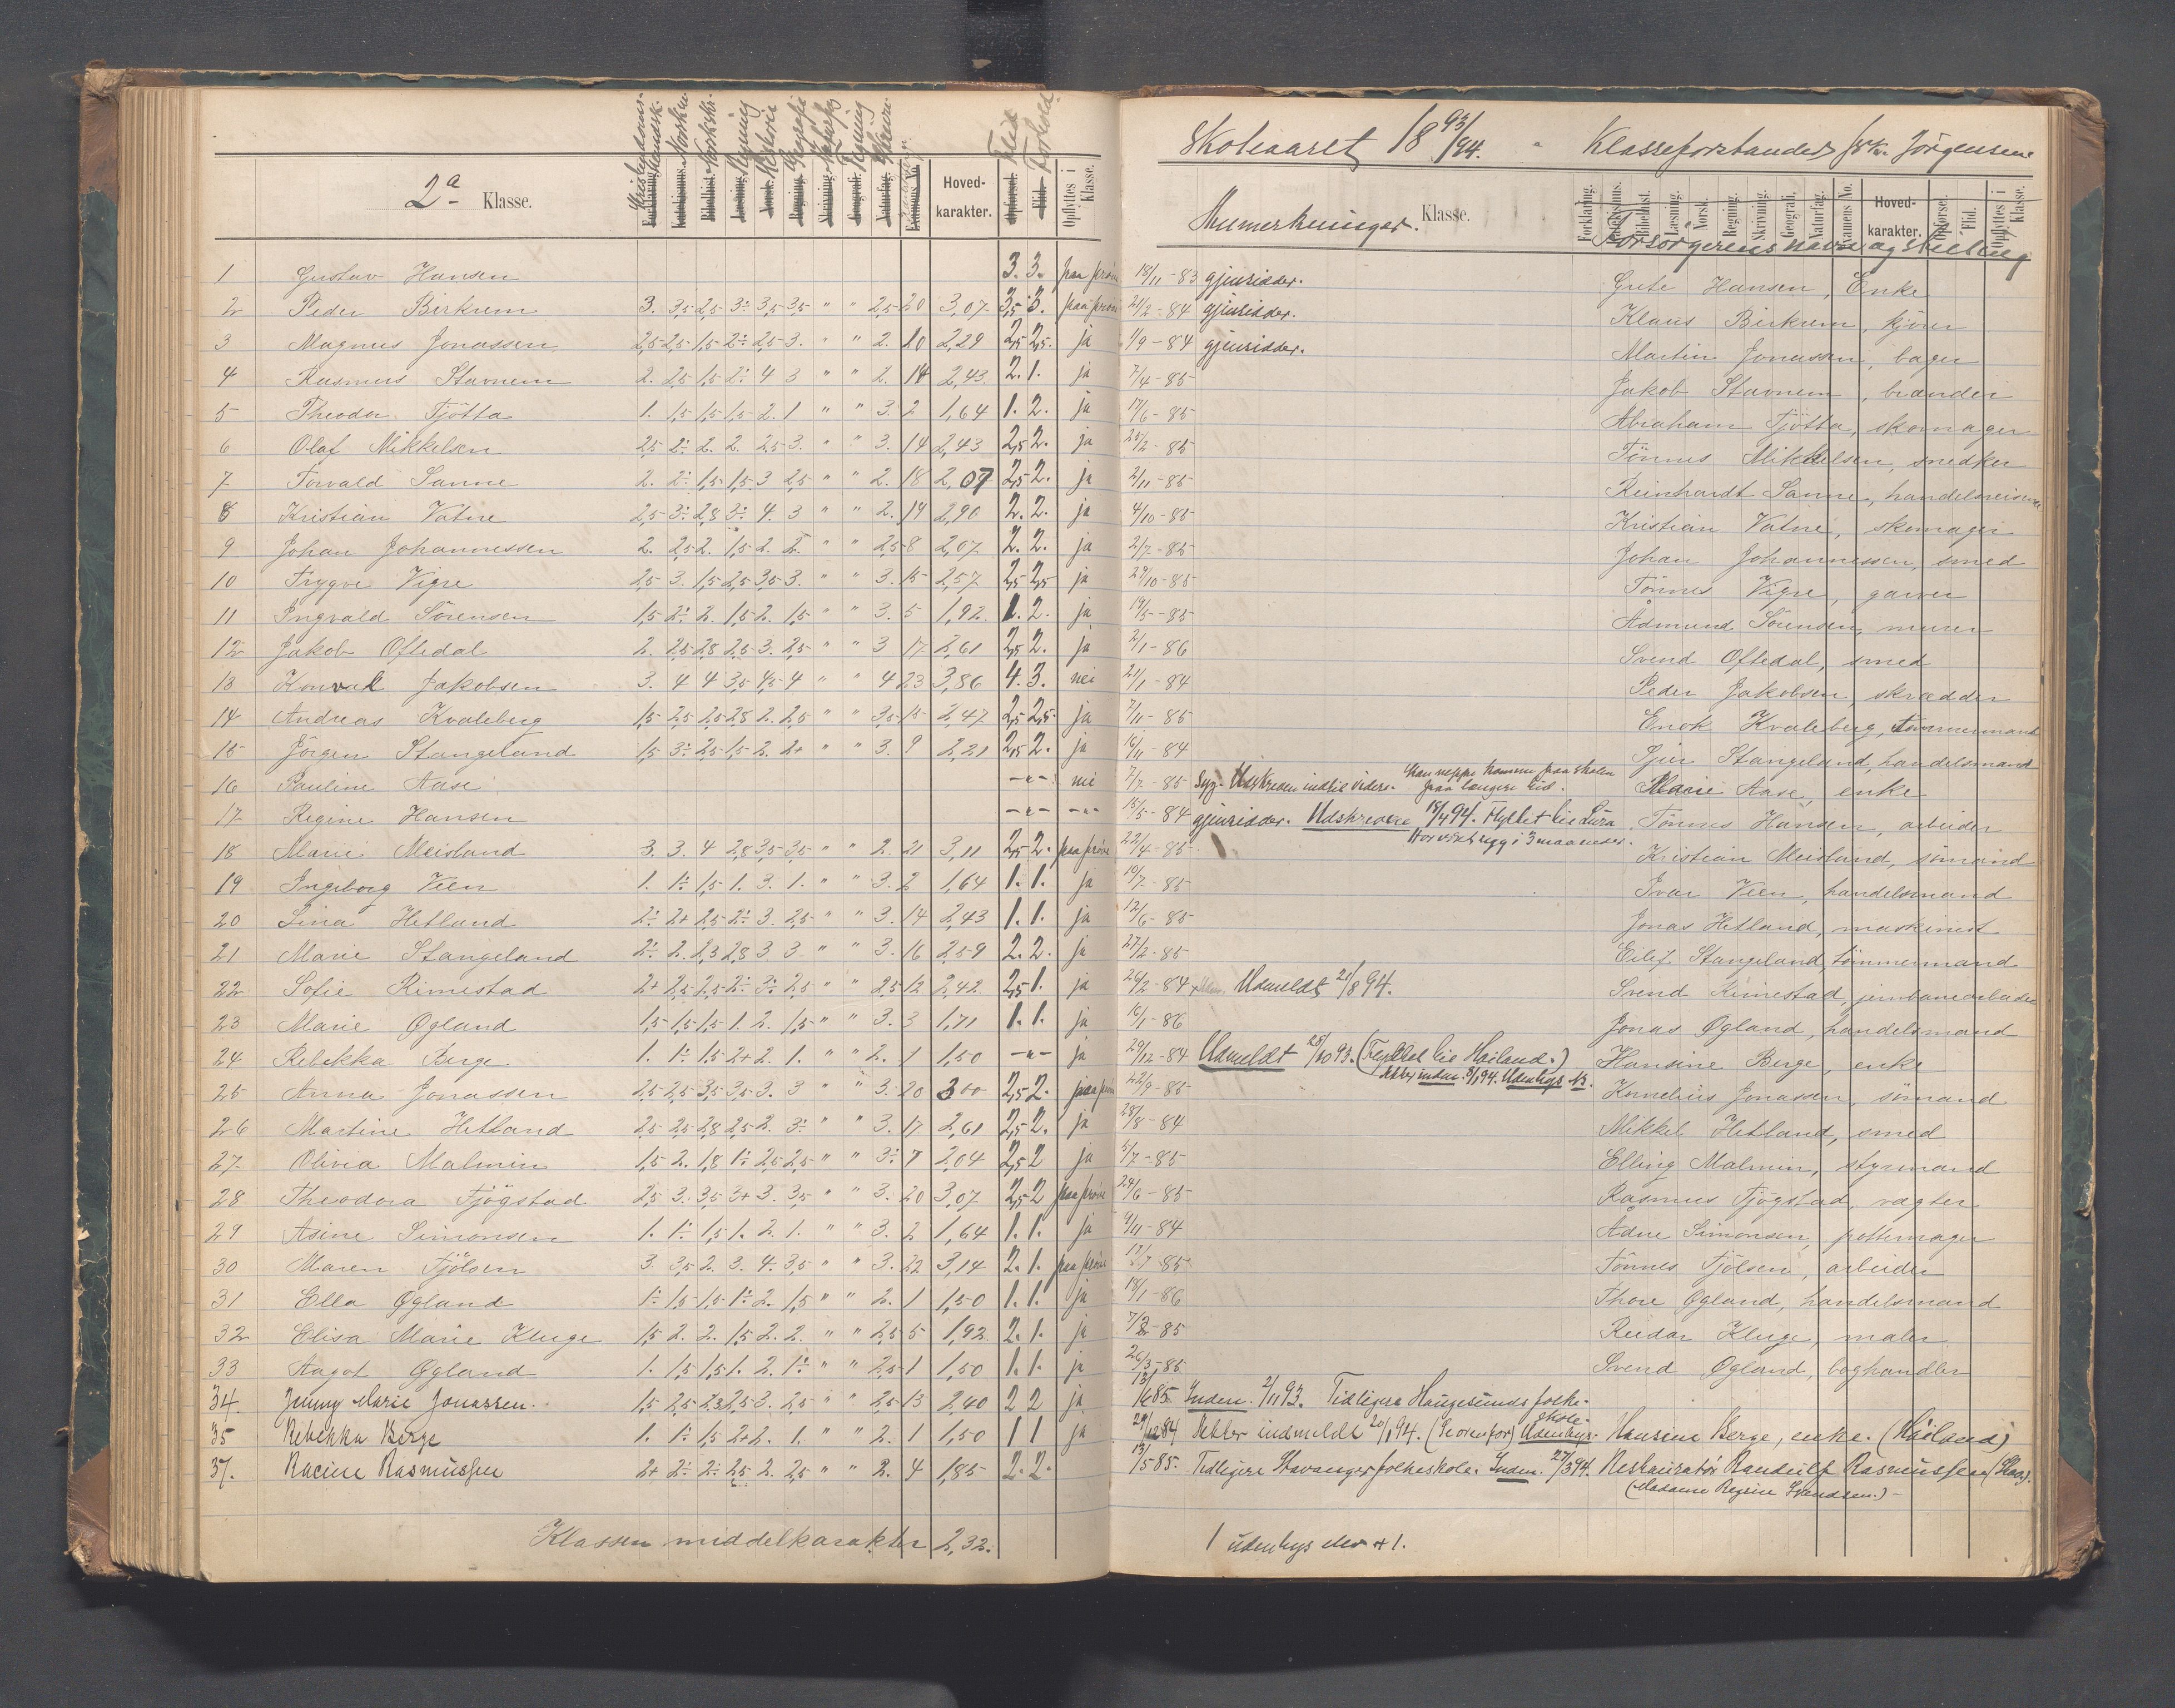 Skoleaaret 18 93/94. Klasseforstander frkn. Jörgensen
2a Klasse.
Kristendoms- Norsk Regning Historie Geografi Tegning Skrivn. Flid Forhold
Hoved-karakter. Opflyttes i Klasse.
Anmerkninger. Klasse.
Forklaring. Katekismus. Bibelhist. Læsning. Norsk. Regning. Skrivning. Geografi. Naturfag. Eksamens No. Hoved-karakter. Opførsel. Flid. Opflyttes i Klasse.
Forsörgerens navn og stilling
1 Gustav Hansen 3. 3. paa prøve 18/11-83 gjensidder. Grete Hansen, Enke
2 Peder Birkrem 3. 3,5 2,5 3÷ 3,5 3,5 " " 2,5 20 3,07 3,5 3. paa prøve 21/2-84 gjensidder. Klaus Birkrem, kjörer
3 Magnus Jonassen 2,5 2,5 1,5 2÷ 2,5 3. " " 2. 10 2,29 2,5 2,5. ja 1/9-84 gjensidder. Martin Jonassen, bager
4 Rasmus Stavnem 2. 2,5 1,5 2÷ 4 3 " " 2. 14 2,43 2. 1. ja 7/4-85 Jakob Stavnem, brænder
5 Theodor Tjötta 1. 1,5 1,5 1,5 2. 1 " " 3. 2 1,64 1. 2. ja 17/6-85 Abraham Tjötta, skomager
6 Olaf Mikkelsen 2,5 2÷ 2. 2. 2,5 3. " " 3. 14 2,43 2,5 2. ja 25/2-85 Tönnes Mikkelsen, snedker
7 Torvald Sanne 2. 2÷ 1,5 1,5 3 2,5 " " 2. 18 2,07 2,5 2. ja 2/11-85 Reinhardt Sanne, handelsreisende
8 Kristian Vatne 2,5 3÷ 2,8 3÷ 4. 3 " " 2. 19 2,90 2. 2. ja 4/10-85 Kristian Vatne, skomager
9 Johan Johannessen 2. 2,5 2. 1,5 2. 2. " " 2,5 8 2,07 2. 2. ja 2/7-85 Johan Johannessen, smed
10 Trygve Vigre 2,5 3. 1,5 2,5 3,5 3. " " 3. 15 2,57 2,5 2,5 ja 29/10-85 Tönnes Vigre, garver
11 Ingvald Sörensen 1,5 2÷ 2. 1,5 2. 1,5 " " 3. 5 1,92 1. 2. ja 19/5-85 Admund Sörensen, murer
12 Jakob Oftedal 2. 2,5 2,8 2,5 3. 2,5 " " 3 17 2,61 2,5 2. ja 2/1-86 Svend Oftedal, smed
13 Konval Jakobsen 3. 4 4 3,5 4,5 4 " " 4 23 3,86 4. 3. nei 21/1-84 Peder Jakobsen, skrædder
14 Andreas Kvaleberg 1,5 2,5 2,5 2,8 2. 2,5 " " 3,5 15 2,47 2,5 2,5 ja 7/11-85 Enok Kvaleberg, tömmermand
15 Jörgen Stangeland 1,5 3÷ 2,5 1,5 2. 2+ " " 3. 9 2,21 2,5 2. ja 16/11-84 Sjur Stangeland, handelsmand
16 Pauline Aase -"- nei 7/7-85 Syg. Udskreven indtil videre. Kan neppe komme paa skolen paa længere tid. Marie Aase, enke
17 Regine Hansen -"- -"- 15/5-84 gjensidder. Udskreven 18/4 94. Flyttet til Lura Tönnes Hansen, arbeider
18 Marie Meisland 3. 3. 4 2,8 3,5 3,5 " " 2. 21 3,11 2,5 2. paa prøve 22/4-85 Har været syg i 3 maaneder. Kristian Meisland, sömand
19 Ingeborg Veen 1. 1÷ 1,5 1. 3. 1. " " 3. 2 1,64 1. 1. ja 19/7-85 Ivar Veen, handelsmand
20 Lina Hetland 2÷ 2+ 2,5 2÷ 3. 2,5 " " 3. 14 2,43 1. 1. ja 12/6-85 Jonas Hetland, maskinist
21 Marie Stangeland 2÷ 2. 2,3 2,8 3 3 " " 3. 16 2,59 2. 2. ja 27/2-85 Eilif Stangeland, tömmermand
22 Sofie Rimestad 2+ 2,5 2,5 2÷ 3÷ 2,5 " " 2,5 12 2,42 2,5 1. ja 24/2-84 Udmeldt 21/8 94. Svend Rimestad, jernbanearbeider
23 Marie Øgland 1,5 1,5 1,5 1. 2. 1,5 " " 3. 3 1,71 1. 1. ja 16/1-86 Jonas Øgland, handelsmand
24 Rebekka Berge 1. 1÷ 1,5 2+ 2. 1. " " 2. 1 1,50 -"- ja 29/12-84 Udmeldt 25/10 93. (Flyttet til Høiland.) Hansine Berge, enke
25 Anna Jonassen 2,5 2,5 3,5 3,5 3. 3 " " 3. 20 3,00 2,5 2. paa prøve 22/9-85 Atter indm. 8/1 94. Udenbys Kornelius Jonassen, sömand
26 Martine Hetland 2,5 2,5 2,8 2,5 2. 3÷ " " 3. 17 2,61 2,5 2. ja 28/8-84 Mikkel Hetland, smed
27 Olivia Malmin 1,5 2. 1,8 1÷ 2,5 2,5 " " 3÷ 7 2,04 2,5 2 ja 5/7-85 Elling Malmin, styrmand
28 Theodora Tjögstad 2,5 3. 3,5 3+ 3. 3,5 " " 3. 20 3,07 2,5 2 paa prøve 24/6-85 Rasmus Tjögstad, vægter
29 Asine Simonsen 1. 1÷ 1,5 1. 2. 1. " " 3. 2 1,64 1. 1. ja 9/11-84 Adne Simonsen, pottemager
30 Maren Tjölsen 3. 3,5 2. 3. 4÷ 3,5 " " 3. 22 3,14 2. 1. paa prøve 17/7-85 Tönnes Tjölsen, arbeider
31 Ella Øgland 1÷ 1,5 1,5 1÷ 2. 1,5 " " 2. 1 1,50 1. 1. ja 18/1-86 Thore Øgland, handelsmand
32 Elisa Marie Kluge 1,5 2. 2. 1,5 2. 2. " " 2,5 5 1,92 2. 1. ja 7/2-85 Reidar Kluge, maler
33 Aagot Øgland 1. 1,5 1,5 1. 2. 1÷ " " 2,5 1 1,50 1. 1. ja 26/3-85 Svend Øgland, boghandler
34. Jenny Marie Jonassen. 1,5 2,5 2,3 2,5 3. 2,5 " " 2,5 13 2,40 2 2 ja Indm. 2/11 93. Tidligere Haugesunds folkeskole.
35 Rebekka Berge 1. 1÷ 1,5 2+ 2. 1. " " 2. 1 1,50 1 1 ja 29/12 84 Atter indmeldt 20/1 94. (Se ovenfor) Udenbys. Hansine Berge, enke. (Høiland)
37. Racine Rasmussen 2+ 2÷ 2÷ 2,5 2. 2,5 " " 2. 4 1,85 2. 2. 13/5 85. Tidligere Stavanger folkeskole. Indm. 27/3 94. Restauratör Randulf Rasmussen
(Madame Regine Svendsen.)
Klassens middelkarakter 2,32.
1 udenbys elev + 1.